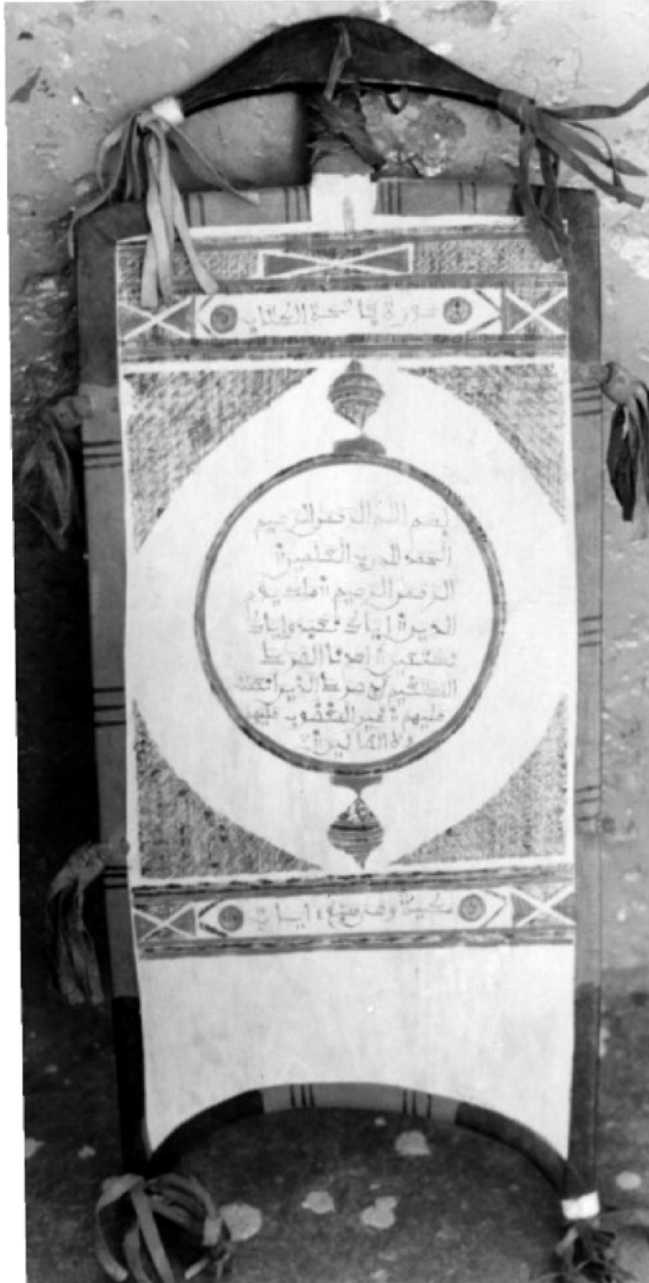 سورة فاتحة الكتاب
بسم الله الرحمن الرحيم
الحمد لله رب العلمين
الرحمن الرحيم ملك يوم
الدين إياك نعبد وإياك
نستعين اهدنا الصرط
المستقيم صرط الذين أنعمت
عليهم غير المغضوب عليهم
ولا الضالين
مكية وهي سبع ءايات